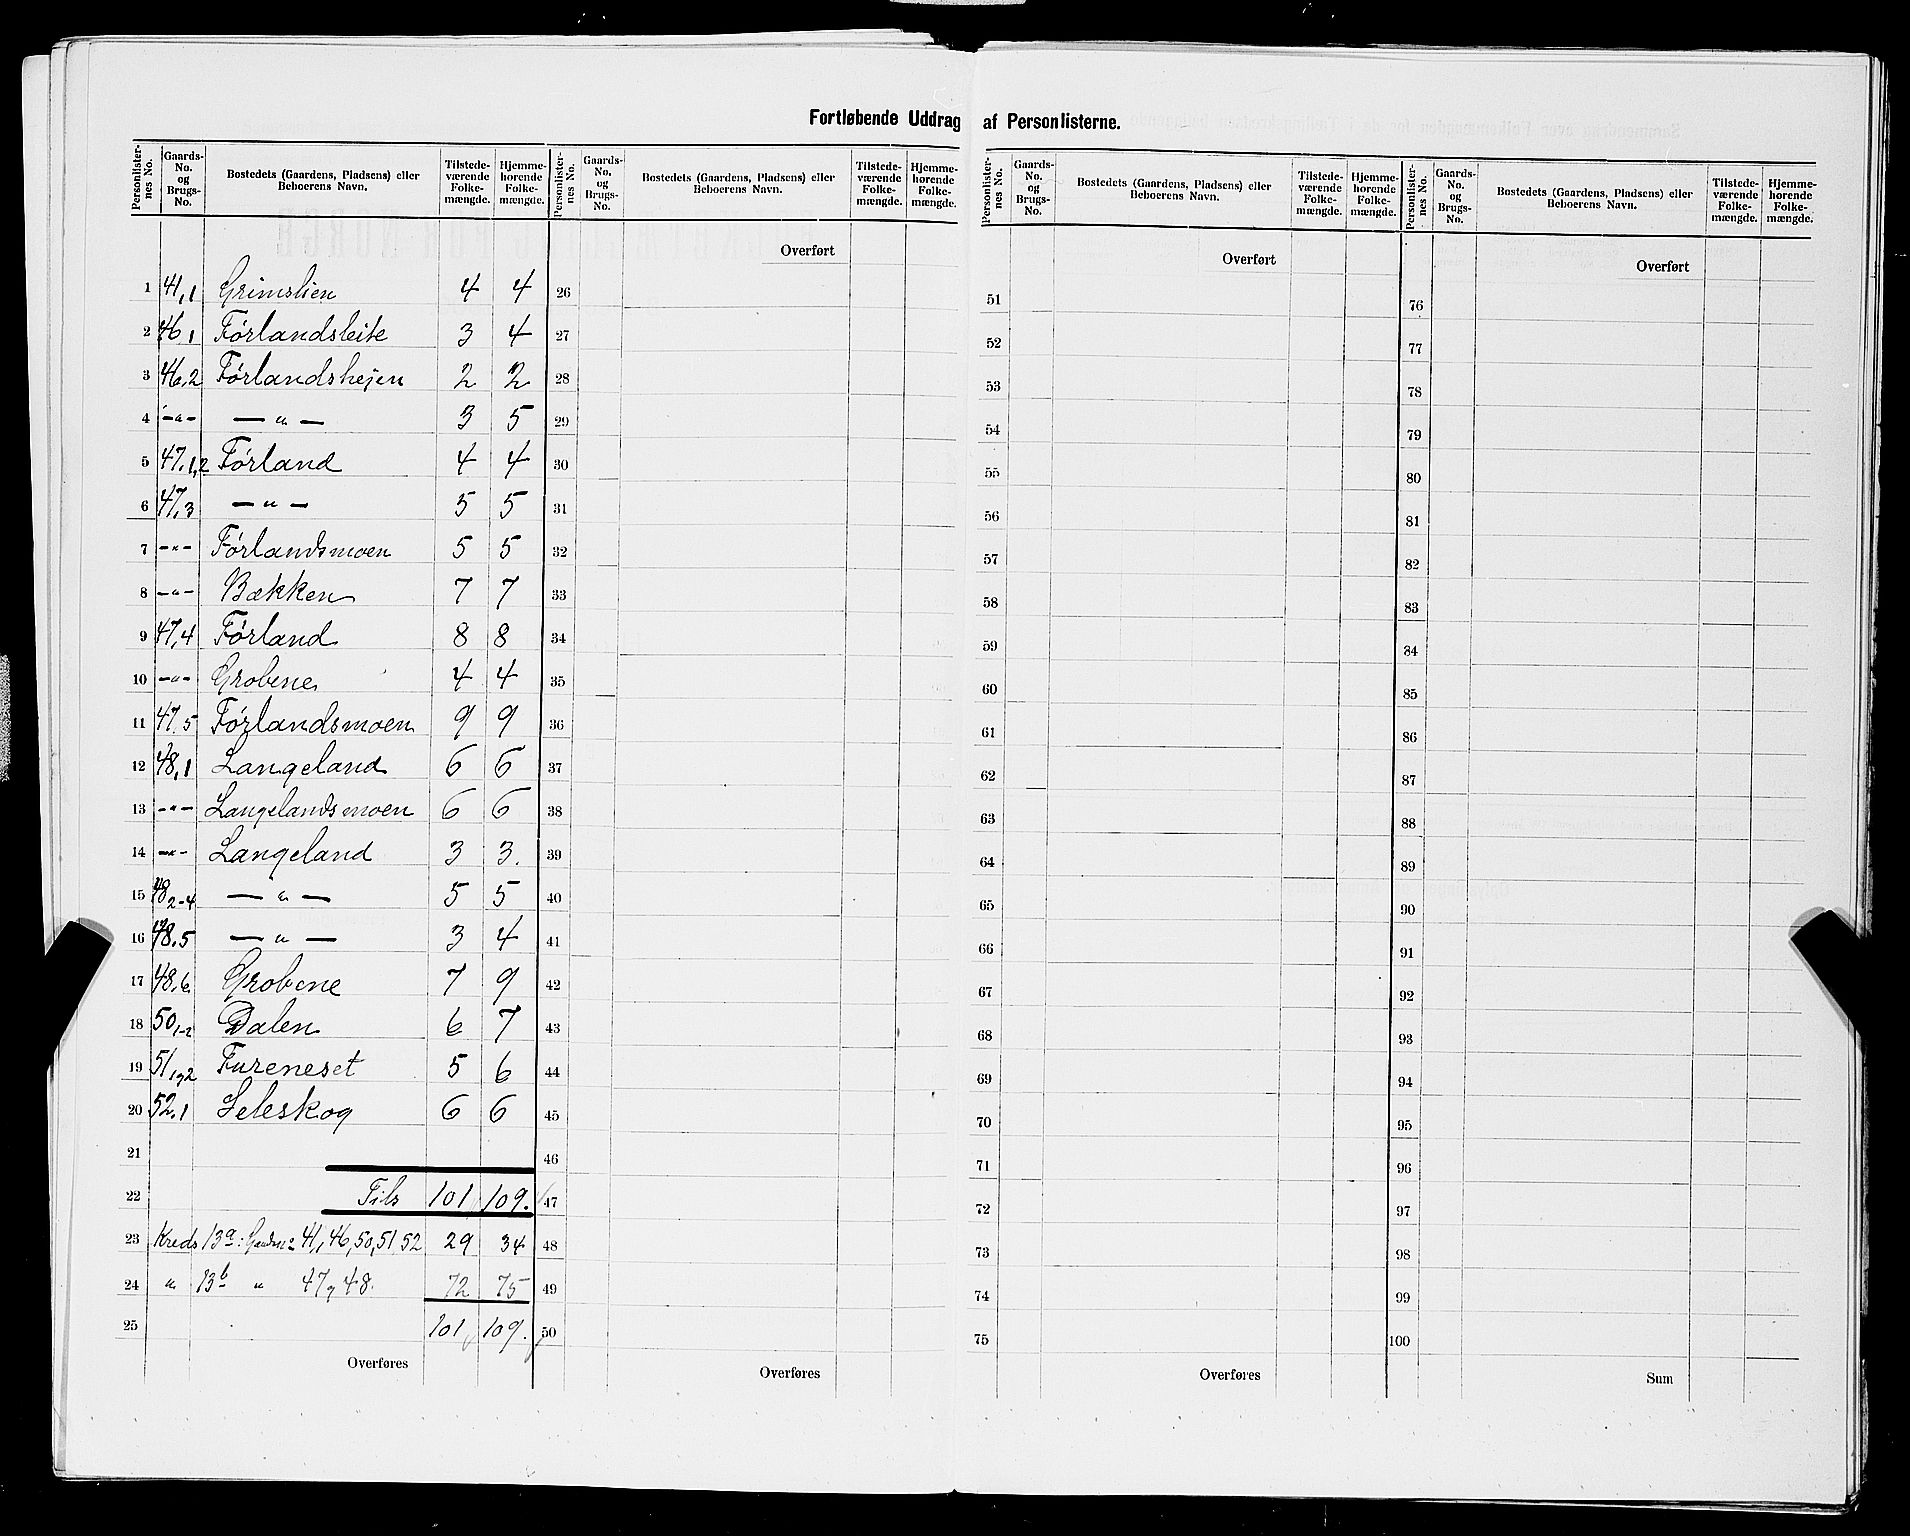 Fortløbende Uddrag af Personlisterne.
Personlister-nes No. | Gaards-No. og Brugs-No. | Bostedets (Gaardens, Pladsens) eller Beboerens Navn. | Tilstede-værende Folke-mængde. | Hjemme-hørende Folke-mængde.
1 41,1 Grimslien 4 4
2 46,1 Førlandsleite 3 4
3 46,2 Førlandshejen 2 2
4 -"- — " — 3 5
5 47,1,2 Førland 4 4
6 47,3 — " — 5 5
7 -"- Førlandsmoen 5 5
8 -"- Bækken 7 7
9 47,4 Førland 8 8
10 -"- Grobene 4 4
11 47,5 Førlandsmoen 9 9
12 48,1 Langeland 6 6
13 -"- Langelandsmoen 6 6
14 -"- Langeland 3 3.
15 48 2-4 — " — 5 5
16 48,5 — " — 3 4
17 48,6 Grobene 7 9
18 50,1-2 Dalen 6 7
19 51,1,2 Fureneset 5 6
20 52,1 Leleskog 6 6
21
22 Tils 101 109.
23 Kreds 13a: Gaardsno 41, 46, 50, 51, 52 29 34
24 " 13b " 47, 48. 72 75
25 101 109.
Overføres
Personlister-nes No. | Gaards-No. og Brugs-No. | Bostedets (Gaardens, Pladsens) eller Beboerens Navn. | Tilstede-værende Folke-mængde. | Hjemme-hørende Folke-mængde.
Overført
26
27
28
29
30
31
32
33
34
35
36
37
38
39
40
41
42
43
44
45
46
47
48
49
50
Overføres
Personlister-nes No. | Gaards-No. og Brugs-No. | Bostedets (Gaardens, Pladsens) eller Beboerens Navn. | Tilstede-værende Folke-mængde. | Hjemme-hørende Folke-mængde.
Overført
51
52
53
54
55
56
57
58
59
60
61
62
63
64
65
66
67
68
69
70
71
72
73
74
75
Overføres
Personlister-nes No. | Gaards-No. og Brugs-No. | Bostedets (Gaardens, Pladsens) eller Beboerens Navn. | Tilstede-værende Folke-mængde. | Hjemme-hørende Folke-mængde.
Overført
76
77
78
79
80
81
82
83
84
85
86
87
88
89
90
91
92
93
94
95
96
97
98
99
100
Sum